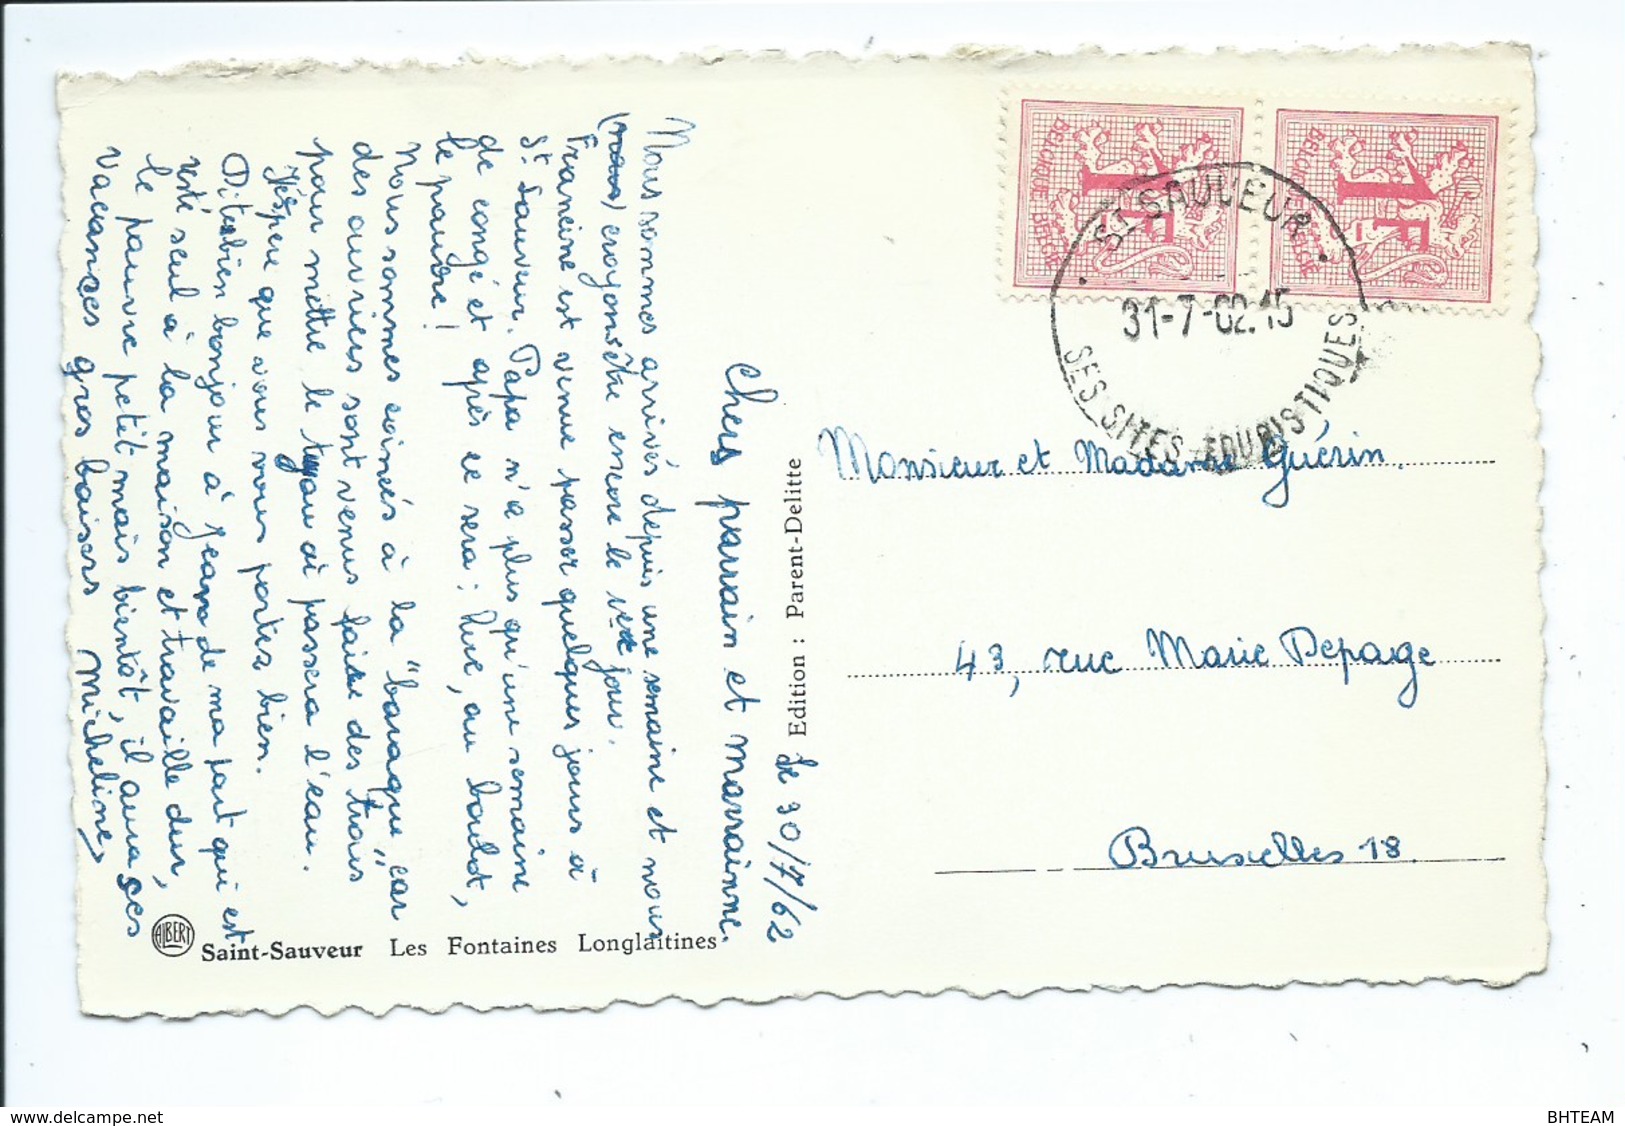 Le 30/7/62
Chers parrain et marrainne.
Nous sommes arrivés depuis une semaine et nous
croyons être encore le jour.
Francine est venue passer quelques jours à
St Sauveur. Papa n'a plus qu'une semaine
de congé et après ce sera: hue, au boulot,
le pauvre!
Nous sommes coincés à la "baraque" car
des ouvriers sont venus faire des trous
pour mettre le tuyau où passera l'eau.
J'éspère que vous vous portés bien.
Dites bien bonjour à Jean de ma part qui est
resté seul à la maison et travaille dur,
le pauvre petit mais bientôt, il aura ses
vacances gros baisers Micheline
BELGIQUE BELGIE
1F
BELGIQUE BELGIE
1F
ST SAUVEUR
31-7-62.15
SES SITES TOURISTIQUES
Monsieur et Madame Guérin.
43, rue Marie Depage
Bruxelles 18.
Edition : Parent-Delitte
ALBERT
Saint-Sauveur Les Fontaines Longlaitines
www.delcampe.net
BHTEAM